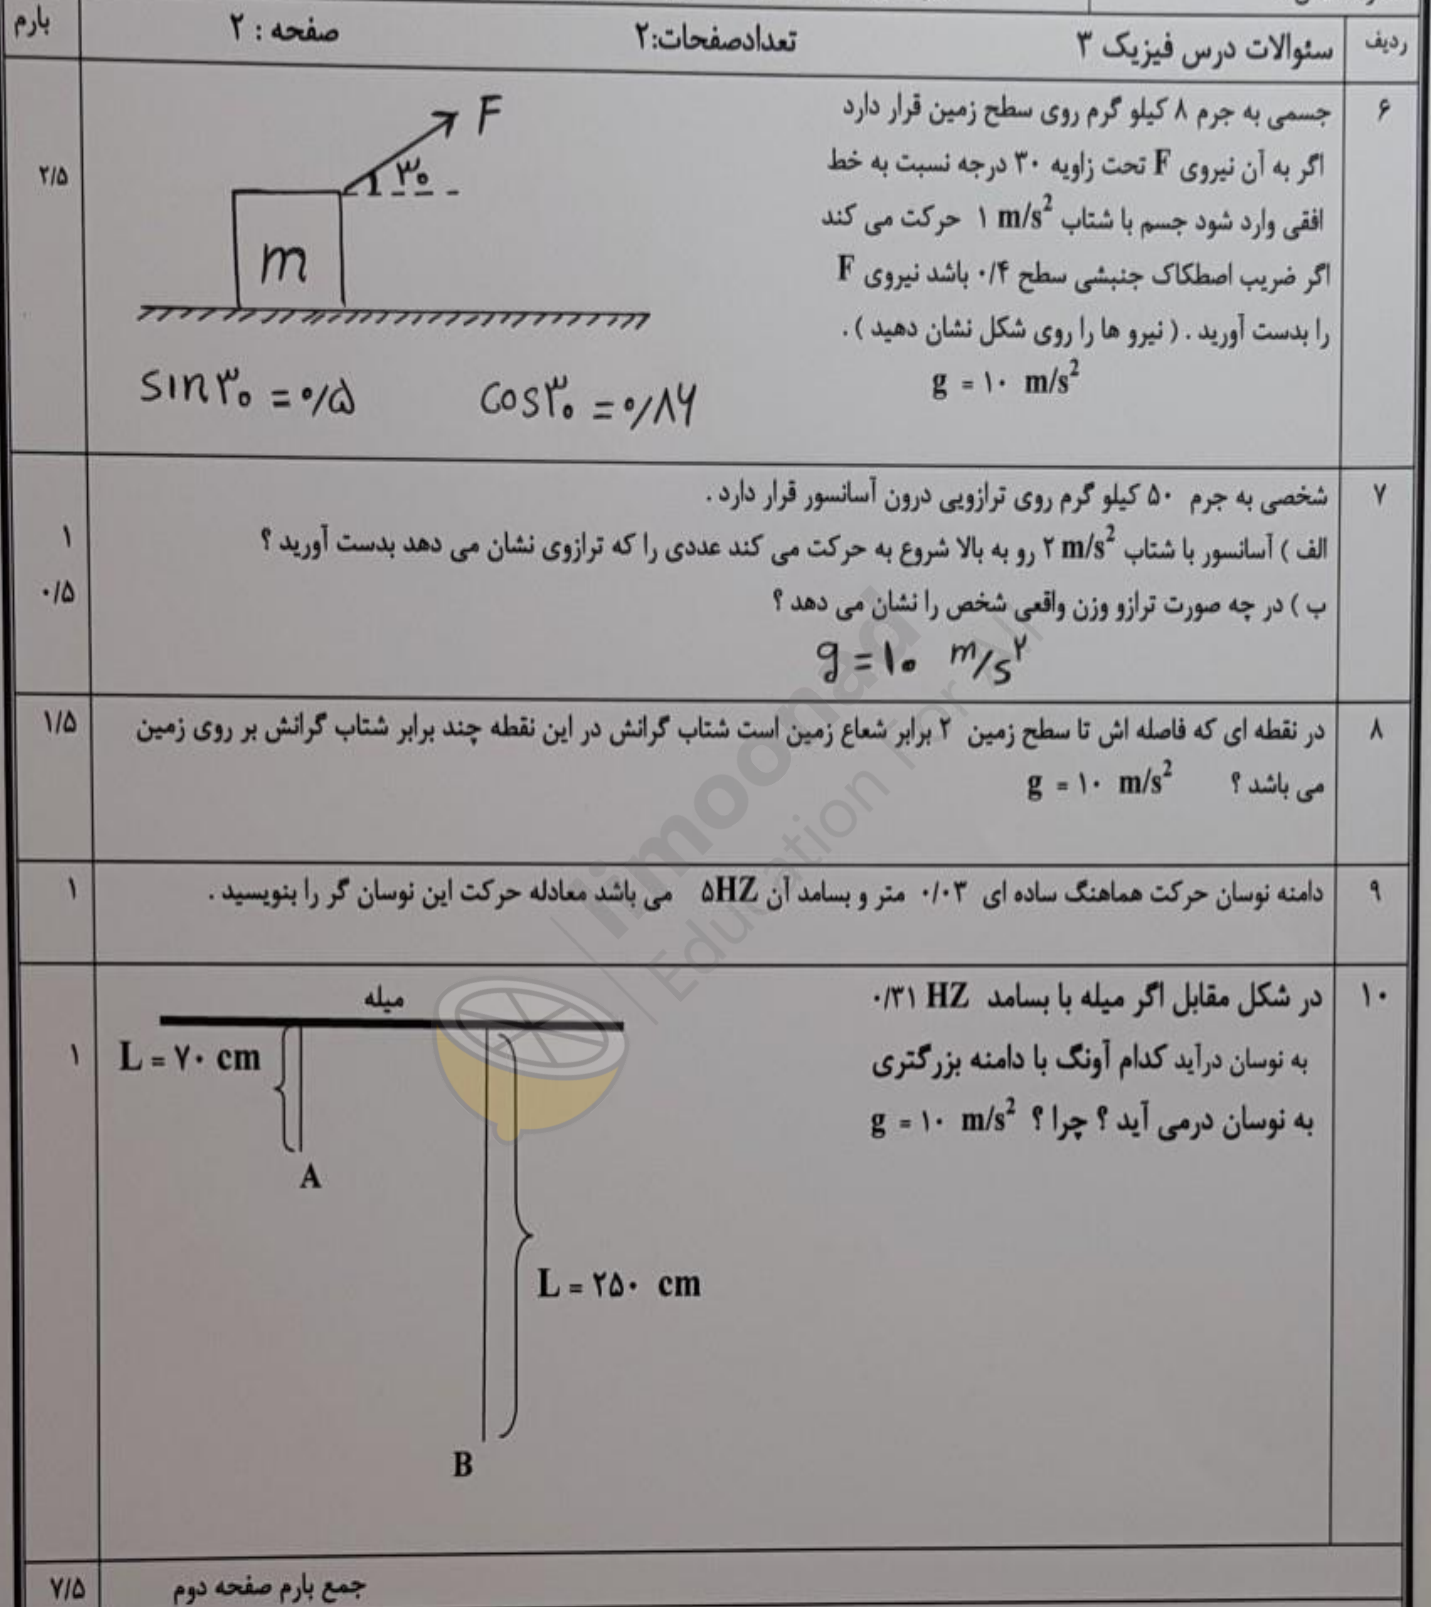 ردیف
سئوالات درس فیزیک ۳
تعدادصفحات:۲
صفحه : ۲
بارم
۶
جسمی به جرم ۸ کیلو گرم روی سطح زمین قرار دارد
اگر به آن نیروی F تحت زاویه ۳۰ درجه نسبت به خط
افقی وارد شود جسم با شتاب ۱ m/s² حرکت می کند
اگر ضریب اصطکاک جنبشی سطح ۰/۴ باشد نیروی F
را بدست آورید . ( نیرو ها را روی شکل نشان دهید ) .
g = ۱۰ m/s²
F
۳۰
m
sin۳۰ = ۰/۵
cos۳۰ = ۰/۸۶
۲/۵
۷
شخصی به جرم ۵۰ کیلو گرم روی ترازویی درون آسانسور قرار دارد .
الف ) آسانسور با شتاب ۲ m/s² رو به بالا شروع به حرکت می کند عددی را که ترازوی نشان می دهد بدست آورید ؟
۱
ب ) در چه صورت ترازو وزن واقعی شخص را نشان می دهد ؟
۰/۵
g = ۱۰ m/s²
۸
در نقطه ای که فاصله اش تا سطح زمین ۲ برابر شعاع زمین است شتاب گرانش در این نقطه چند برابر شتاب گرانش بر روی زمین
می باشد ؟ g = ۱۰ m/s²
۱/۵
۹
دامنه نوسان حرکت هماهنگ ساده ای ۰/۰۳ متر و بسامد آن ۵HZ می باشد معادله حرکت این نوسان گر را بنویسید .
۱
۱۰
در شکل مقابل اگر میله با بسامد ۰/۳۱ HZ
به نوسان درآید کدام آونگ با دامنه بزرگتری
به نوسان درمی آید ؟ چرا ؟ g = ۱۰ m/s²
میله
L = ۷۰ cm
A
L = ۲۵۰ cm
B
۱
جمع بارم صفحه دوم
۷/۵
limoonad
Education For All